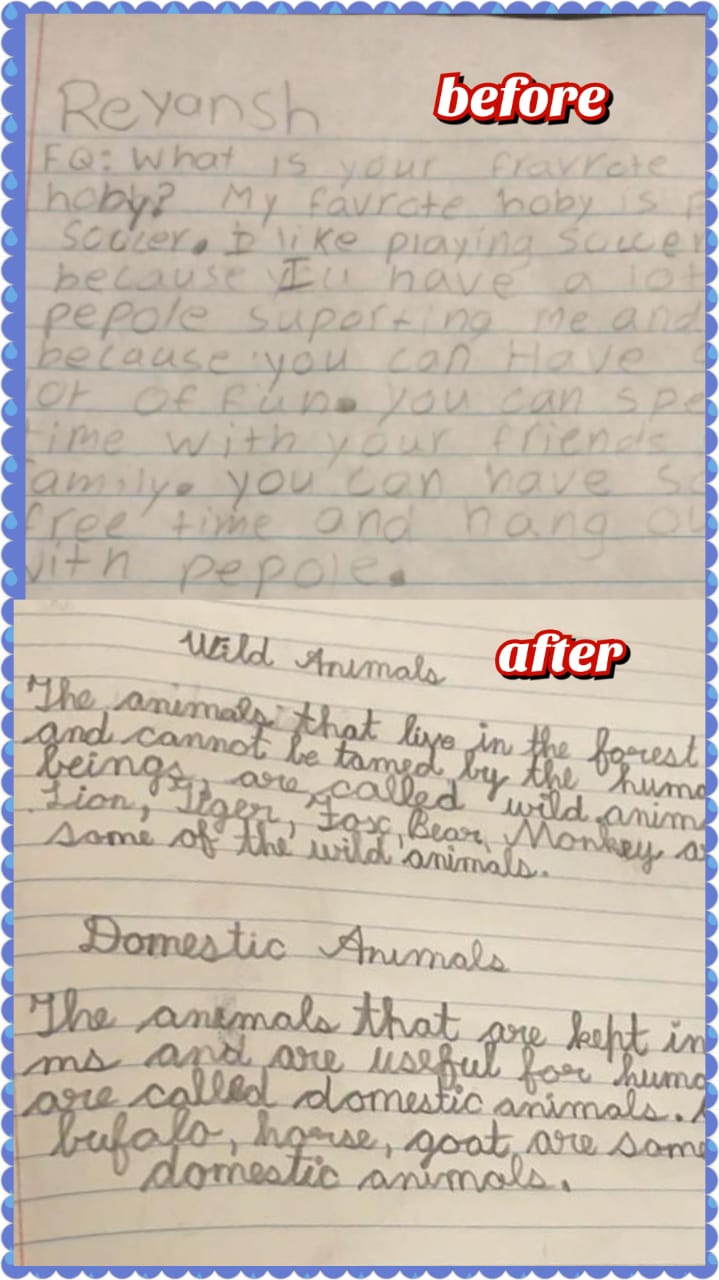 before
Reyansh
FQ: What is your fravrete
hoby? My favrote hoby is p
Soccer. I like playing soccer
because I have a lot
pepole suporting me and
because you can Have a
lot of fun. you can spe
time with your friends
family. you can have so
free time and hang ou
with pepole.
after
Wild Animals
The animals that live in the forest
and cannot be tamed by the huma
beings, are called wild anim
Lion, Tiger, Fox, Bear, Monkey a
some of the wild animals.
Domestic Animals
The animals that are kept in
ms and are useful for huma
are called domestic animals.
bufalo, horse, goat, are some
domestic animals.